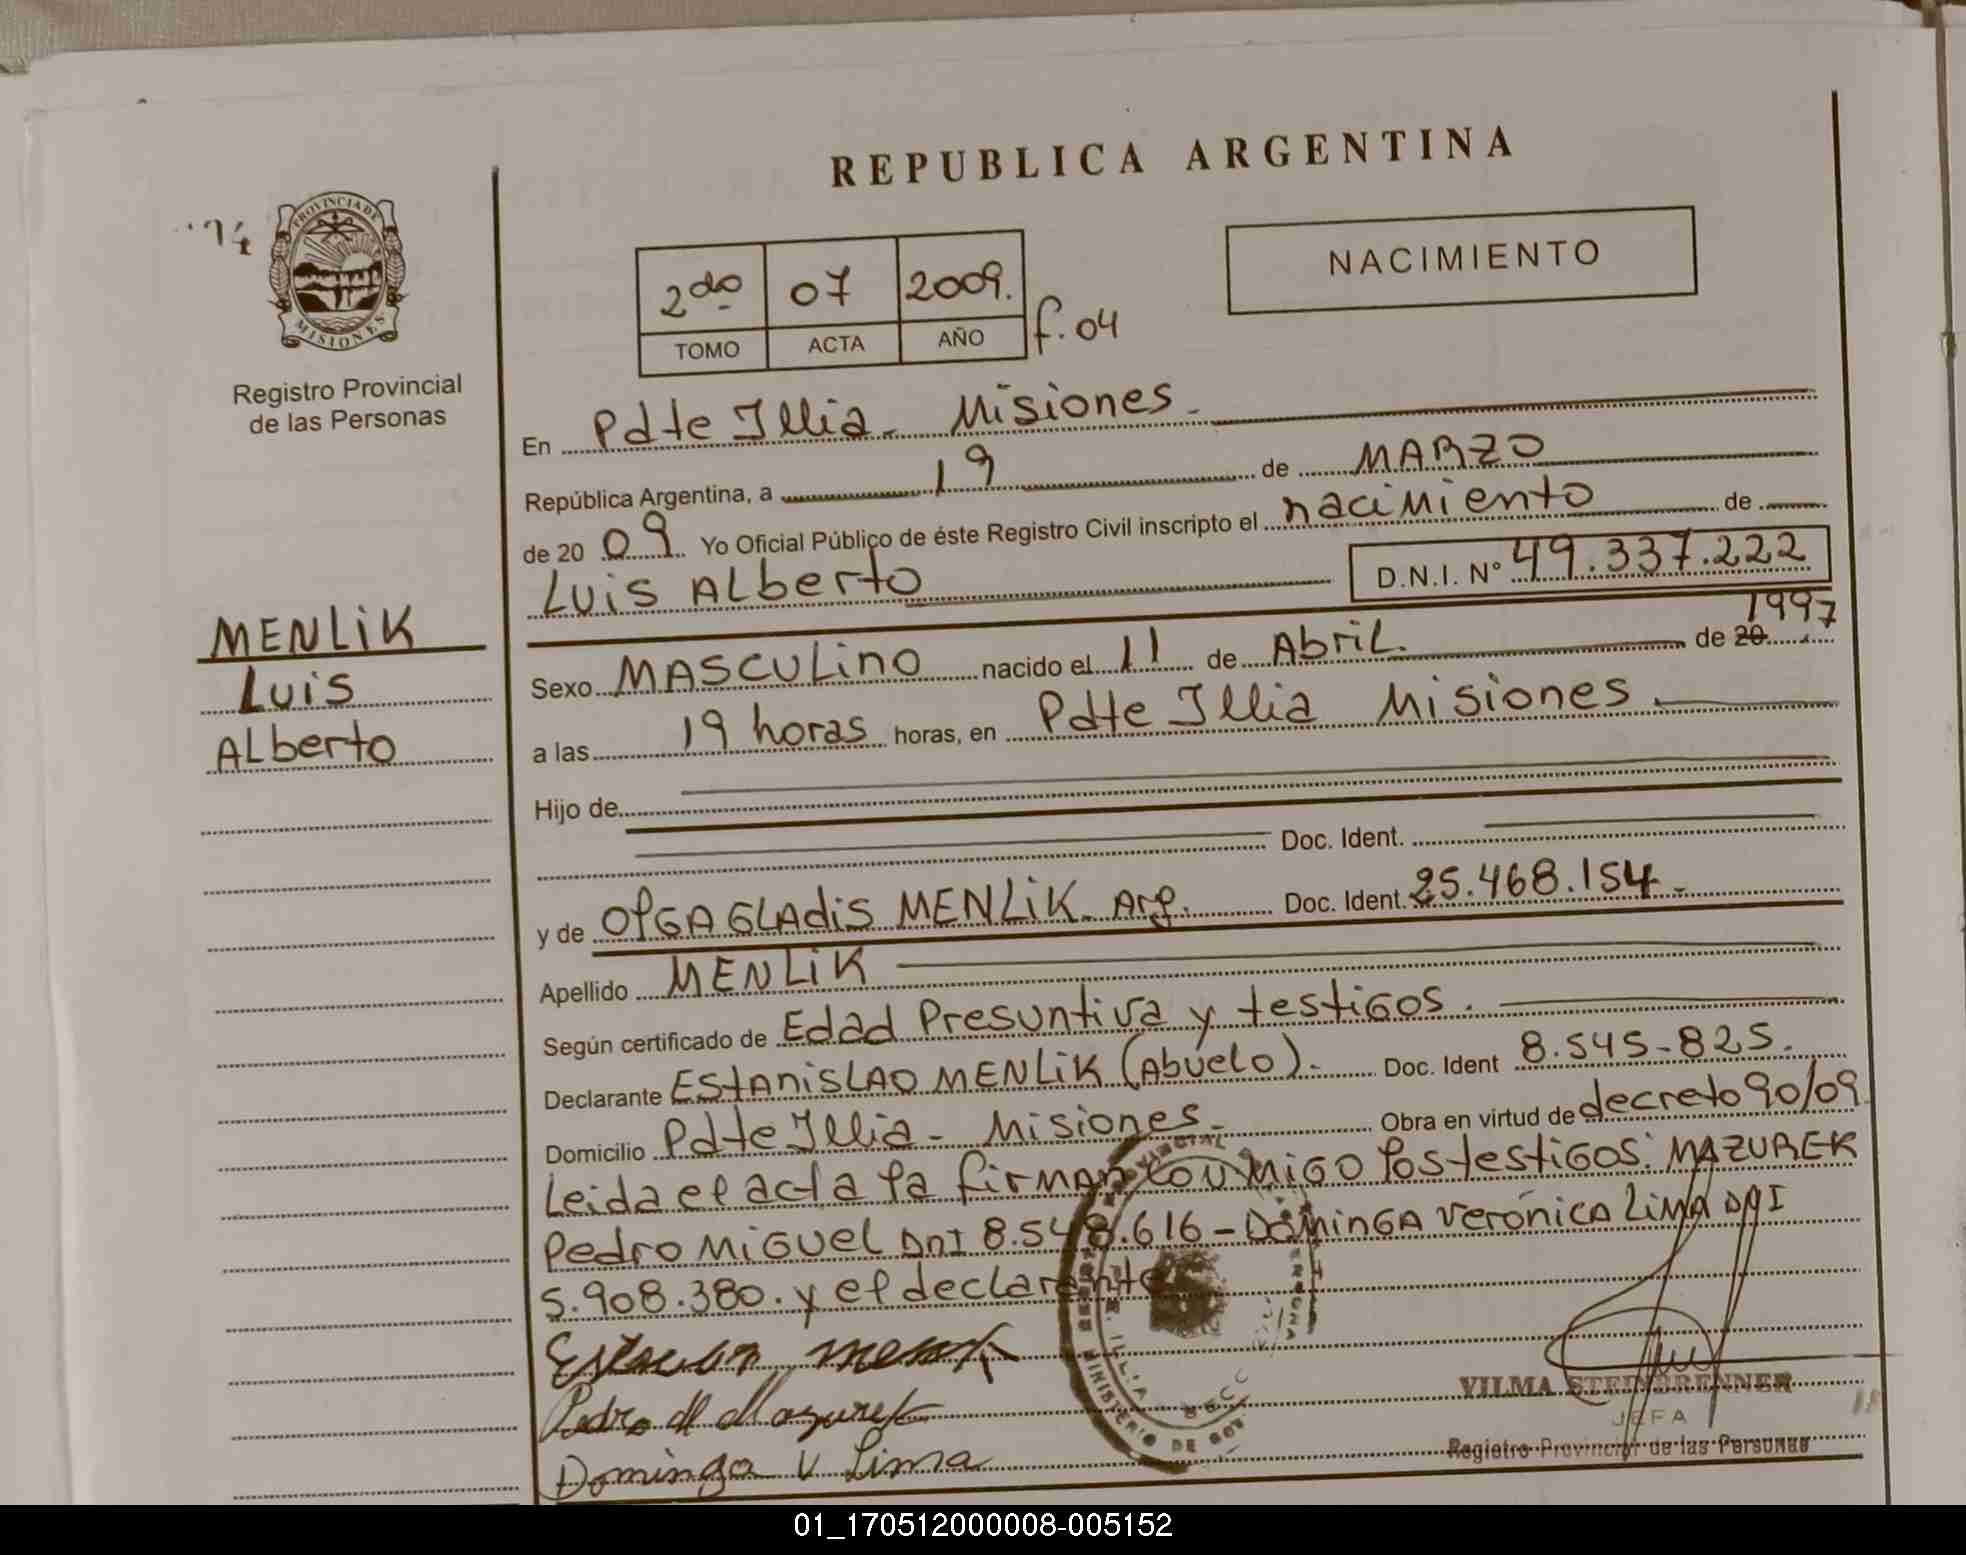 REPUBLICA ARGENTINA
PROVINCIA DE
MISIONES
Registro Provincial
de las Personas
NACIMIENTO
2do 07 2009. f. 04
TOMO ACTA AÑO
En Pdte Illia - Misiones -
República Argentina, a 19 de MARZO
de 20 09 Yo Oficial Público de éste Registro Civil inscripto el nacimiento de
Luis Alberto D.N.I. N° 49.337.222
MENLIK
Luis
Alberto
Sexo MASCULINO nacido el 11 de Abril. de 20 1997
a las 19 horas horas, en Pdte Illia Misiones
Hijo de
Doc. Ident.
y de OlGA GLAdis MENLIK Arg. Doc. Ident. 25.468.154 -
Apellido MENLIK
Según certificado de Edad Presuntiva y testigos.
Declarante EStANiSLAO MENLIK (Abuelo). Doc. Ident 8.545-825.
Domicilio Pdte Illia - Misiones - Obra en virtud de decreto 90/09
Leida el acta la firman conmigo los testigos: MAZUREK
Pedro Miguel DNI 8.548.616 - Dominga Verónica Lima DNI
5.908.380. y el declarante
Pedro M Mazurek
Dominga V Lima
VILMA STEINBRENNER
JEFA
Registro Provincial de las Personas
MINISTERIO DE GOB.
01_170512000008-005152